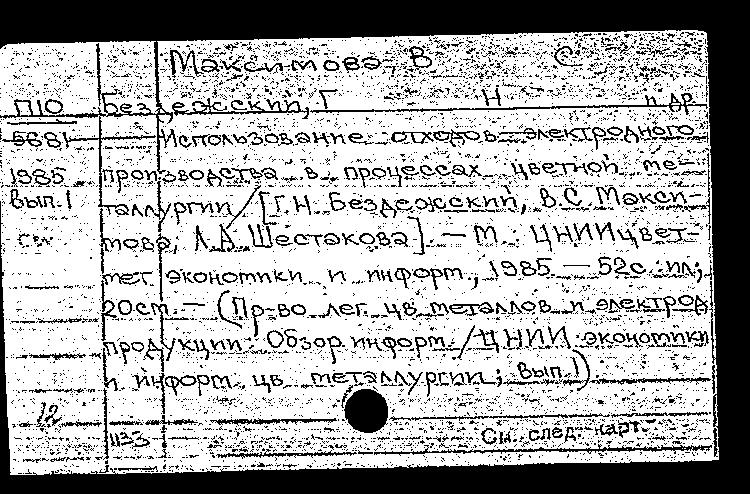 Максимова, В С
П10 Бездежский, Г Н и др
5681 Использование отходов электродного
1985 производства в процессах цветной ме-
Вып. 1 таллургии / [Г.Н. Бездежский, В.С. Макси-
мова, Л.А. Шестакова]. — М.: ЦНИИцвет-
мет экономики и информ., 1985. — 52с.: ил;
20см. — (Пр-во лег. цв. металлов и электрод.
продукции: Обзор. информ. / ЦНИИ экономики
и информ. цв. металлургии; Вып. 1)
12
1133 См. след. карт.